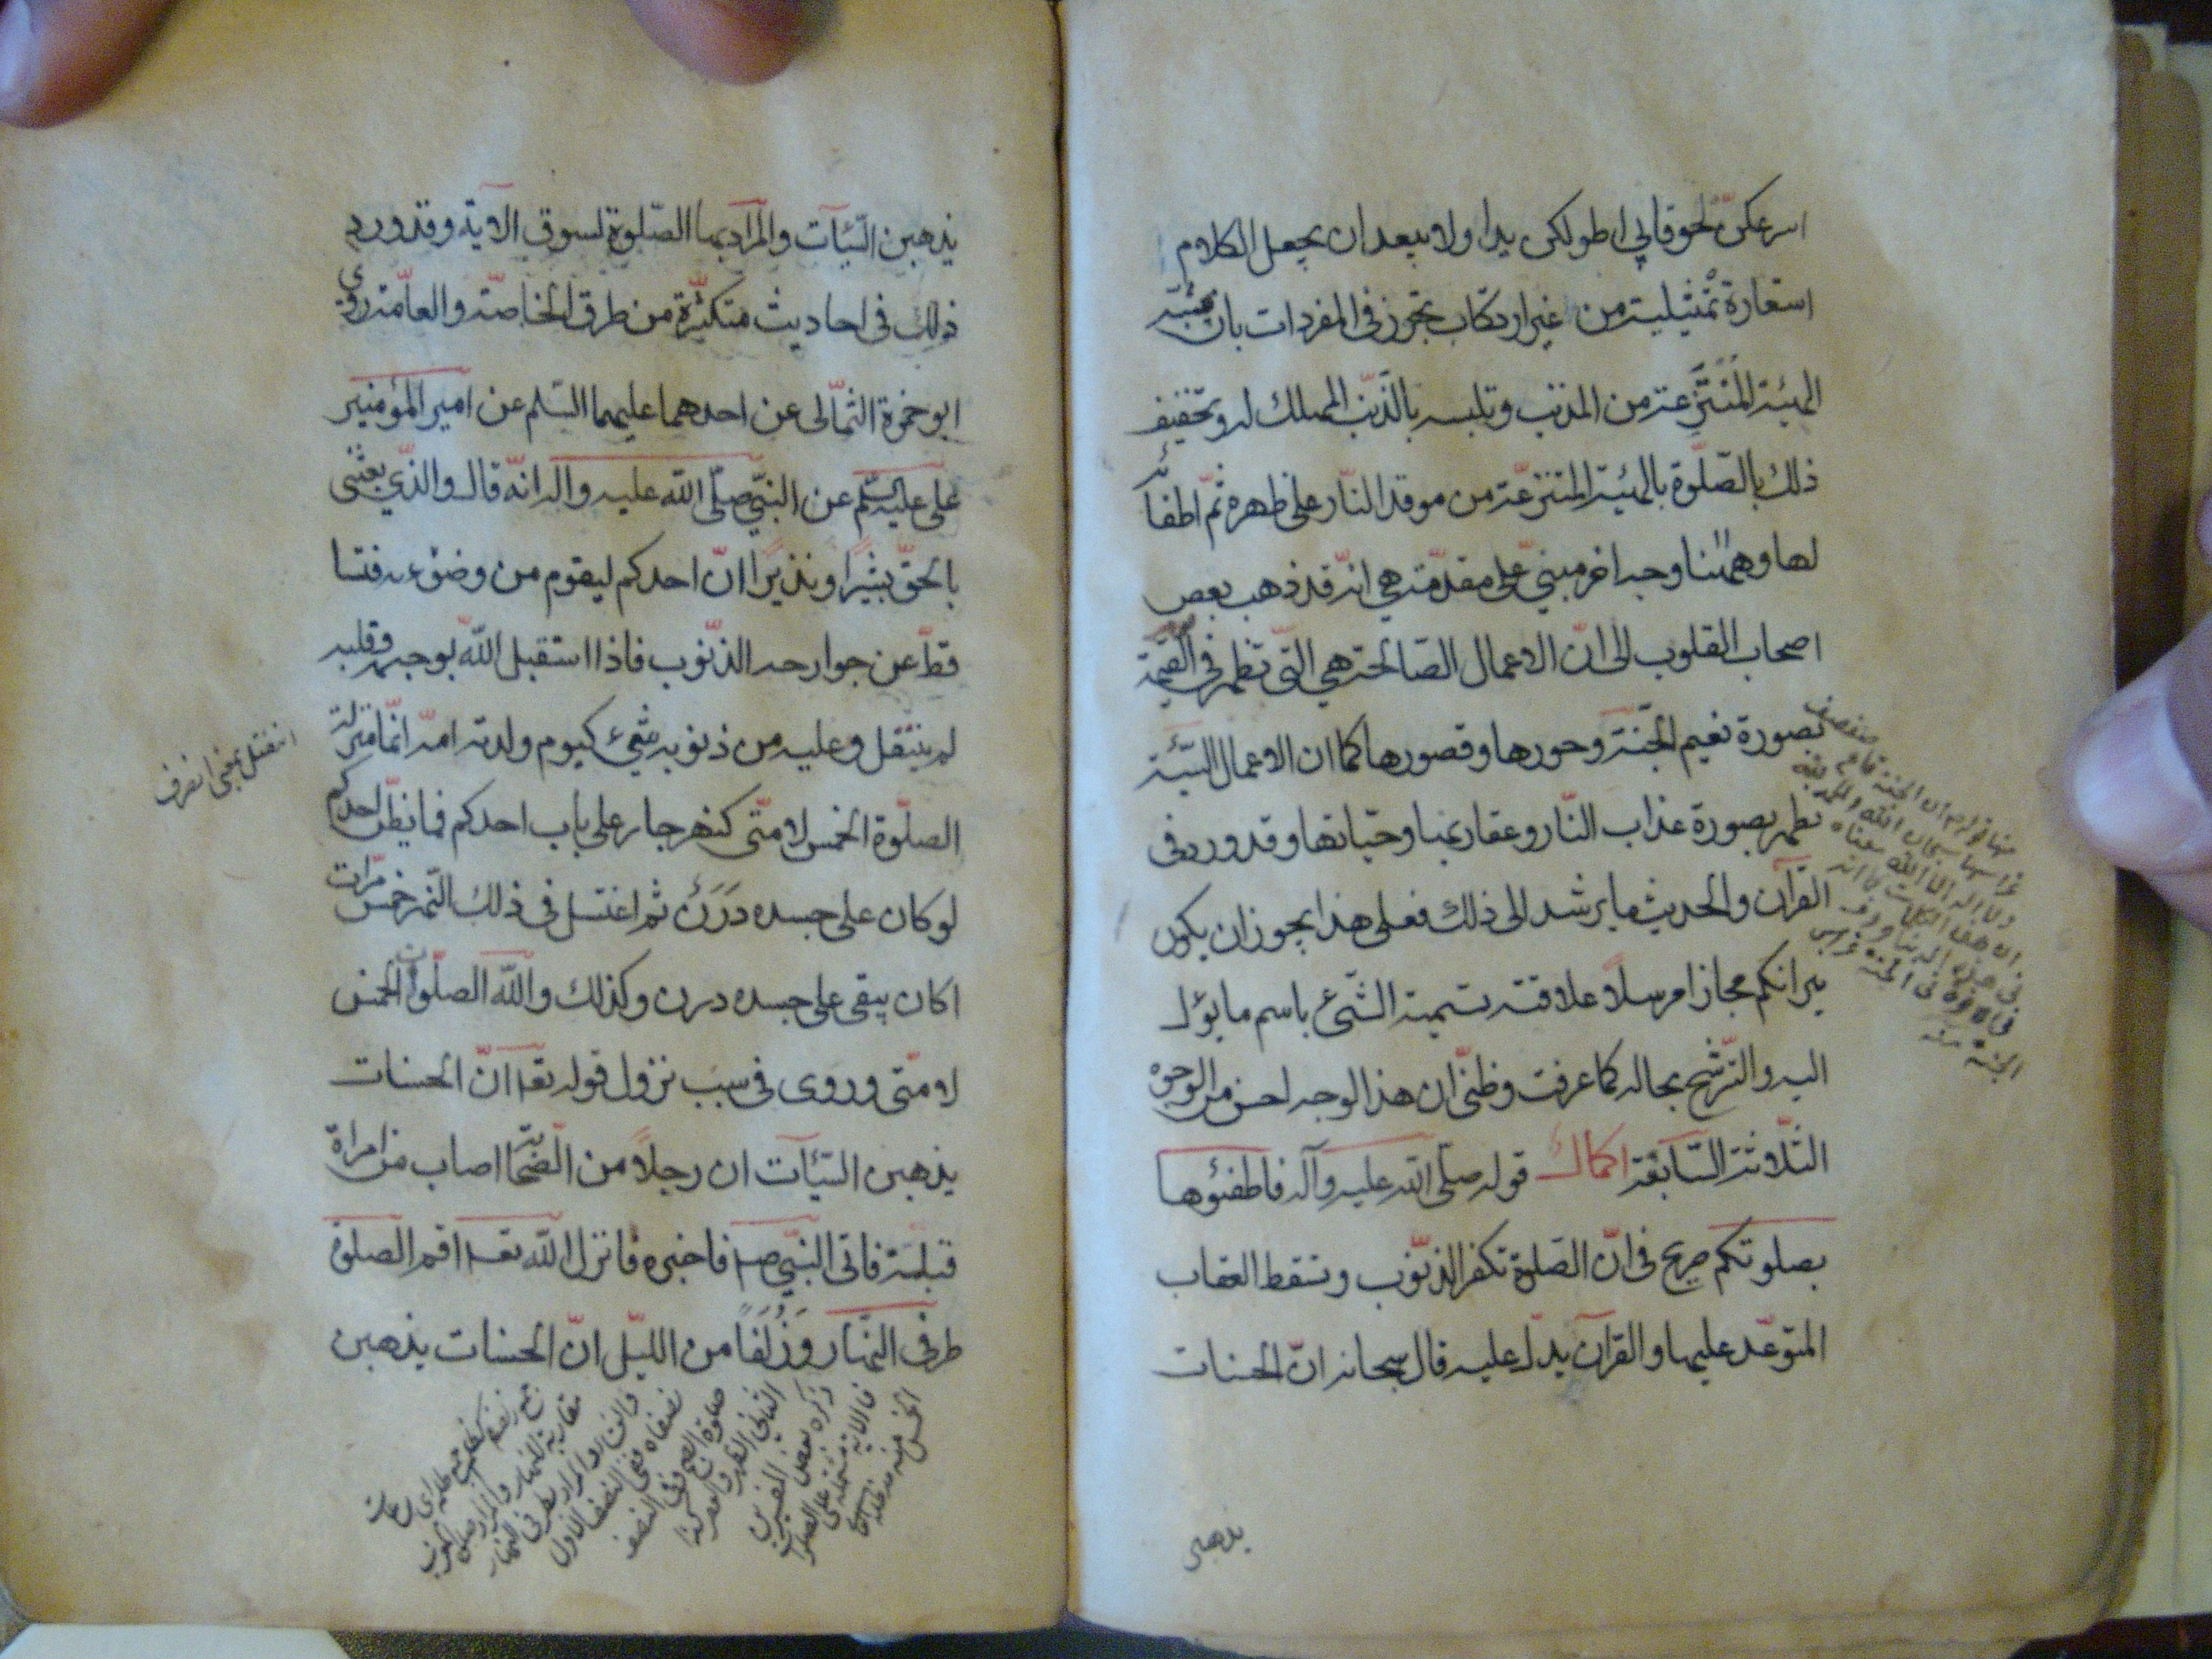 اسرعكنّ لحوقا بي اطولكن يدا ولا يبعد ان يجعل الكلام
استعارة تمثيلية من غير ارتكاب تجوز في المفردات بان يشبّه
الهيئة المنتزعة من المذنب وتلبسه بالذنب المهلك له وتخفيف
ذلك بالصّلوة بالهيئة المنتزعة من موقد النّار على ظهره ثمّ اطفائه
لها وههنا وجه اخر مبنيّ على مقدّمة هي انّه قد ذهب بعض
اصحاب القلوب الى انّ الاعمال الصّالحة هي الّتي تظهر في القيمة
بصورة نعيم الجنّة وحورها وقصورها كما ان الاعمال السّيّئة
تظهر بصورة عذاب النّار وعقاربها وحيّاتها وقد ورد في
القرآن والحديث ما يرشد الى ذلك فعلى هذا يجوز ان يكون
نيرانكم مجازا مرسلا علاقته تسمية الشّيء باسم ما يؤل
اليه والتّرشيح بحاله كما عرفت وظنّي ان هذا الوجه احسن من الوجوه
الثّلاثة السّابقة اكمال قوله صلّى الله عليه وآله فاطفئوها
بصلوتكم صريح في انّ الصّلوة تكفر الذنوب وتسقط العقاب
المتوعّد عليها والقرآن يدلّ عليه قال سبحانه انّ الحسنات
يذهبن
منها قولهم ان الجنة قاع صفصف
غراسها سبحان الله والحمد لله
ولا اله الا الله
الجنة منه
يذهبن السّيّئآت والمراد بها الصّلوة لسوق الاية وقد ورد
ذلك في احاديث متكثّرة من طرق الخاصّة والعامّة روى
ابو حمزة الثمالى عن احدهما عليهما السّلم عن امير المؤمنين
على عليه السّلم عن النبيّ صلّى الله عليه واله انّه قال والذي بعثنى
بالحقّ بشيرا ونذيرا انّ احدكم ليقوم من وضوءه فتسا
قط عن جوارحه الذنوب فاذا استقبل الله بوجهه وقلبه
لم ينتقل وعليه من ذنوبه شيء كيوم ولدته امّه انّما منزلة
الصلوة الخمس لامتى كنهر جار على باب احدكم فما يظنّ احدكم
لو كان على جسده دَرَنٌ ثم اغتسل في ذلك النّهر خمس مرّات
اكان يبقى على جسده درن وكذلك والله الصلوات الخمس
لامتى وروى في سبب نزول قوله تعا انّ الحسنات
يذهبن السّيّئآت ان رجلا من الصّحابة اصاب من امراة
قبلة فاتى النبيّ صم فاخبره فانزل الله تعه اقم الصلوة
طرفي النّهار وَزُلَفًا من الليل انّ الحسنات يذهبن
انفتل بمعنى انصرف
والمراد بطرفي النهار
النصف الاول
ذكره بعض المفسرين